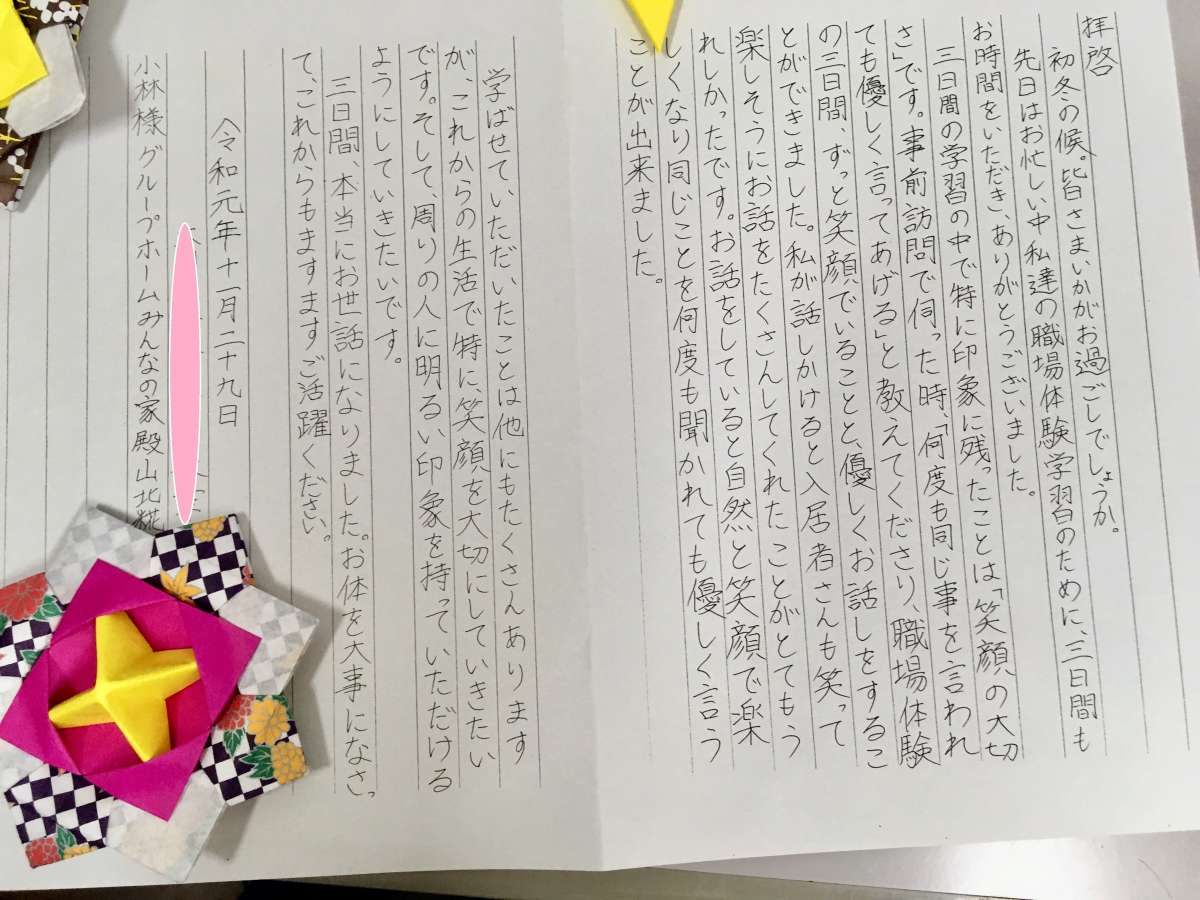 拝啓
初冬の候。皆さまいかがお過ごしでしょうか。
先日はお忙しい中私達の職場体験学習のために、三日間も
お時間をいただき、ありがとうございました。
三日間の学習の中で特に印象に残ったことは「笑顔の大切
さ」です。事前訪問で伺った時、「何度も同じ事を言われ
ても優しく言ってあげる」と教えてくださり、職場体験
の三日間、ずっと笑顔でいることと、優しくお話しをするこ
とができました。私が話しかけると入居者さんも笑って
楽しそうにお話をたくさんしてくれたことがとてもう
れしかったです。お話をしていると自然と笑顔で楽
しくなり同じことを何度も聞かれても優しく言う
ことが出来ました。
学ばせていただいたことは他にもたくさんあります
が、これからの生活で特に、笑顔を大切にしていきたい
です。そして、周りの人に明るい印象を持っていただける
ようにしていきたいです。
三日間、本当にお世話になりました。お体を大事になさっ
て、これからもますますご活躍ください。
令和元年十一月二十九日
小林様グループホームみんなの家殿山北糀